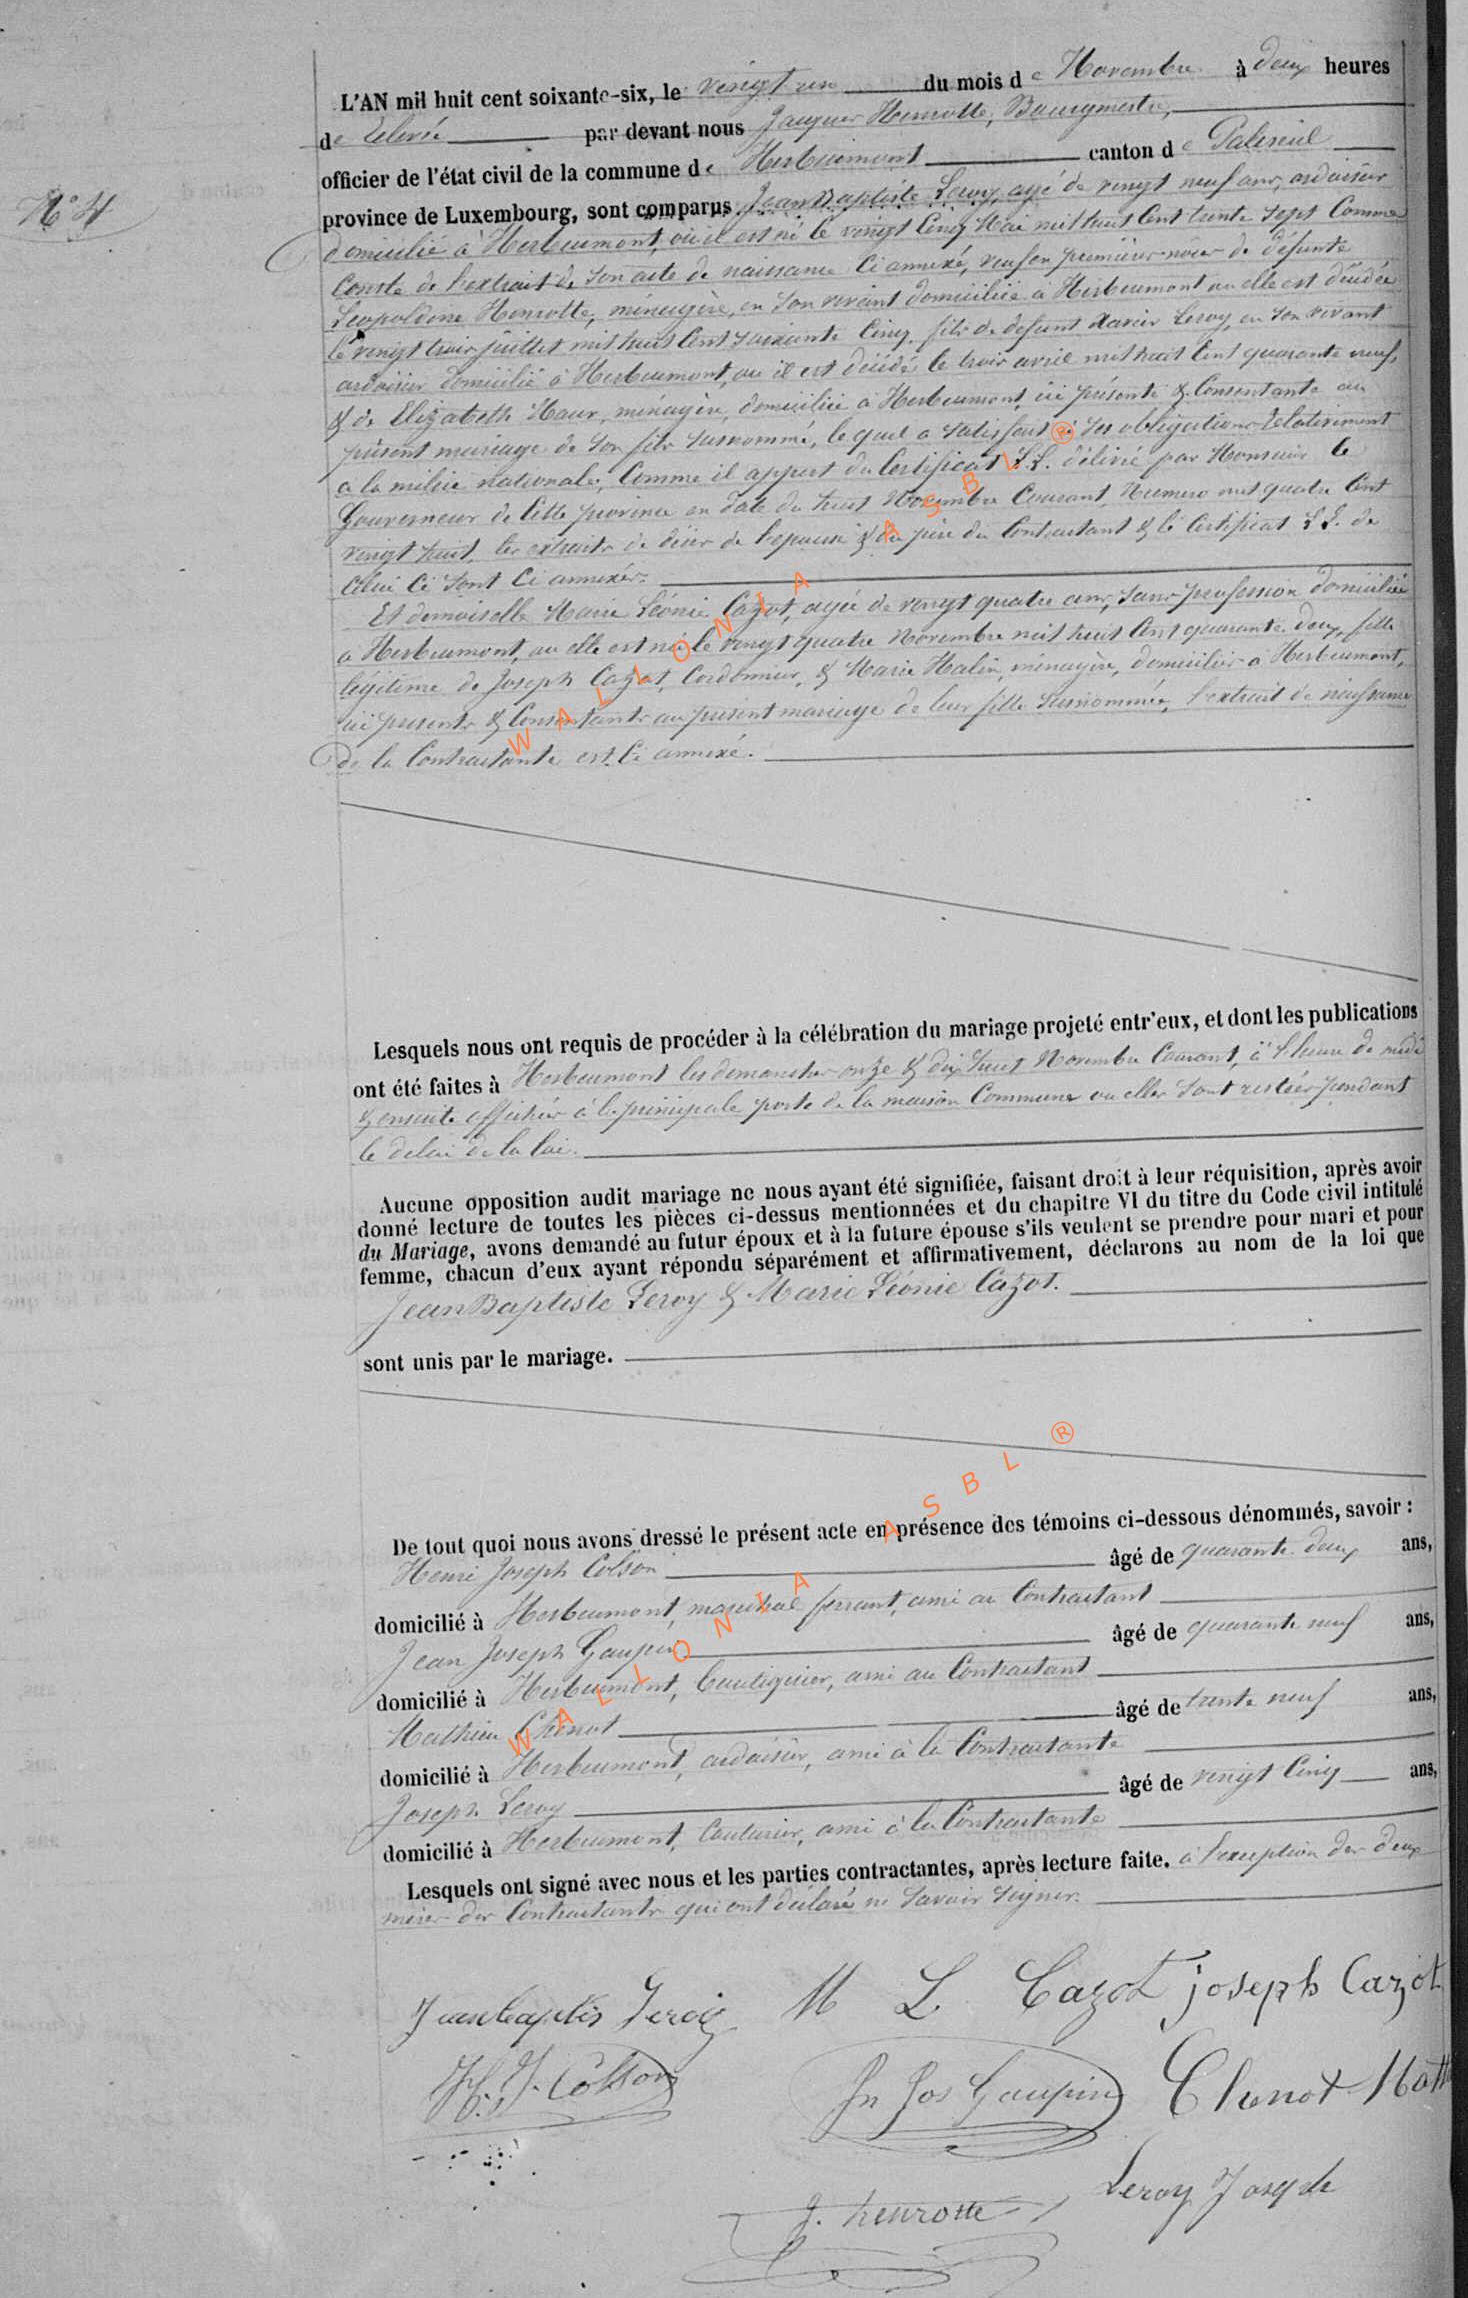 N° 4
L'AN mil huit cent soixante-six, le vingt un du mois de Novembre à deux heures
de relevée par devant nous Jacques Henrotte, Bourgmestre,
officier de l'état civil de la commune de Herbeumont canton de Paliseul
province de Luxembourg, sont comparus Jean Baptiste Leroy, agé de vingt neuf ans, ardoisier
domicilié à Herbeumont, où il est né le vingt Cinq Mai mil huit Cent trente sept Comme
Conste de l'extrait de son acte de naissance Ci annexé, veuf en premières noces de défunte
Léopoldine Henrotte, ménagère, en Son vivant domiciliée à Herbeumont où elle est décédée
le vingt trois juillet mil huit Cent soixante Cinq, fils de defunt Xavier Leroy, en Son vivant
ardoisier domicilié à Herbeumont, où il est décédé le trois avril mil huit Cent quarante neuf,
& de Elizabeth Haur, ménagère, domiciliée à Herbeumont, ici présente & Consentante au
présent mariage de Son fils susnommé, lequel a satisfait à Ses obligations Relativement
a la milice nationale, Comme il appert du Certificat L.L. délivré par Monsieur le
Gouverneur de Cette province en date du huit Novembre Courant, Numero mil quatre Cent
vingt huit, les extraits de décès de l'épouse & du père du Contractant & le Certificat L L. de
Celui Ci Sont Ci annexés.
Et demoiselle Marie Léonie Cazot, agée de vingt quatre ans, Sans profession domiciliée
a Herbeumont, ou elle est née le vingt quatre Novembre mil huit Cent quarante deux, fille
légitime de Joseph Cazot, Cordonnier, & Marie Halin, ménagère, domiciliés à Herbeumont,
ici presents & Consentants au présent mariage de leur fille Susnommée, l'extrait de naissance
de la Contractante est Ci annexé.
WALLONIA ASBL ®
Lesquels nous ont requis de procéder à la célébration du mariage projeté entr'eux, et dont les publications
ont été faites à Herbeumont les dimanches onze & dix huit Novembre Courant, à l'heure de midi
& ensuite affichées à la principale porte de la maison Commune ou elles Sont restées pendant
le delai de la loi.
Aucune opposition audit mariage ne nous ayant été signifiée, faisant droit à leur réquisition, après avoir
donné lecture de toutes les pièces ci-dessus mentionnées et du chapitre VI du titre du Code civil intitulé
du Mariage, avons demandé au futur époux et à la future épouse s'ils veulent se prendre pour mari et pour
femme, chacun d'eux ayant répondu séparément et affirmativement, déclarons au nom de la loi que
Jean Baptiste Leroy & Marie Léonie Cazot.
sont unis par le mariage.
De tout quoi nous avons dressé le présent acte en présence des témoins ci-dessous dénommés, savoir :
Henri Joseph Colson âgé de quarante deux ans,
domicilié à Herbeumont, marechal ferrant, ami au Contractant
Jean Joseph Gaupin âgé de quarante neuf ans,
domicilié à Herbeumont, boutiquier, ami au Contractant
Mathieu Chenot âgé de trente neuf ans,
domicilié à Herbeumont, ardoisier, ami à la Contractante
Joseph Leroy âgé de vingt Cinq ans,
domicilié à Herbeumont, Couturier, ami à la Contractante
Lesquels ont signé avec nous et les parties contractantes, après lecture faite. à l'exception des deux
mères des Contractants qui ont déclaré ne Savoir Signer.
WALLONIA ASBL ®
Jean baptis Leroy M L Cazot joseph Cazot
H. J. Colson Jn Jos Gaupin Chenot Math
Leroy Joseph
J. henrotte